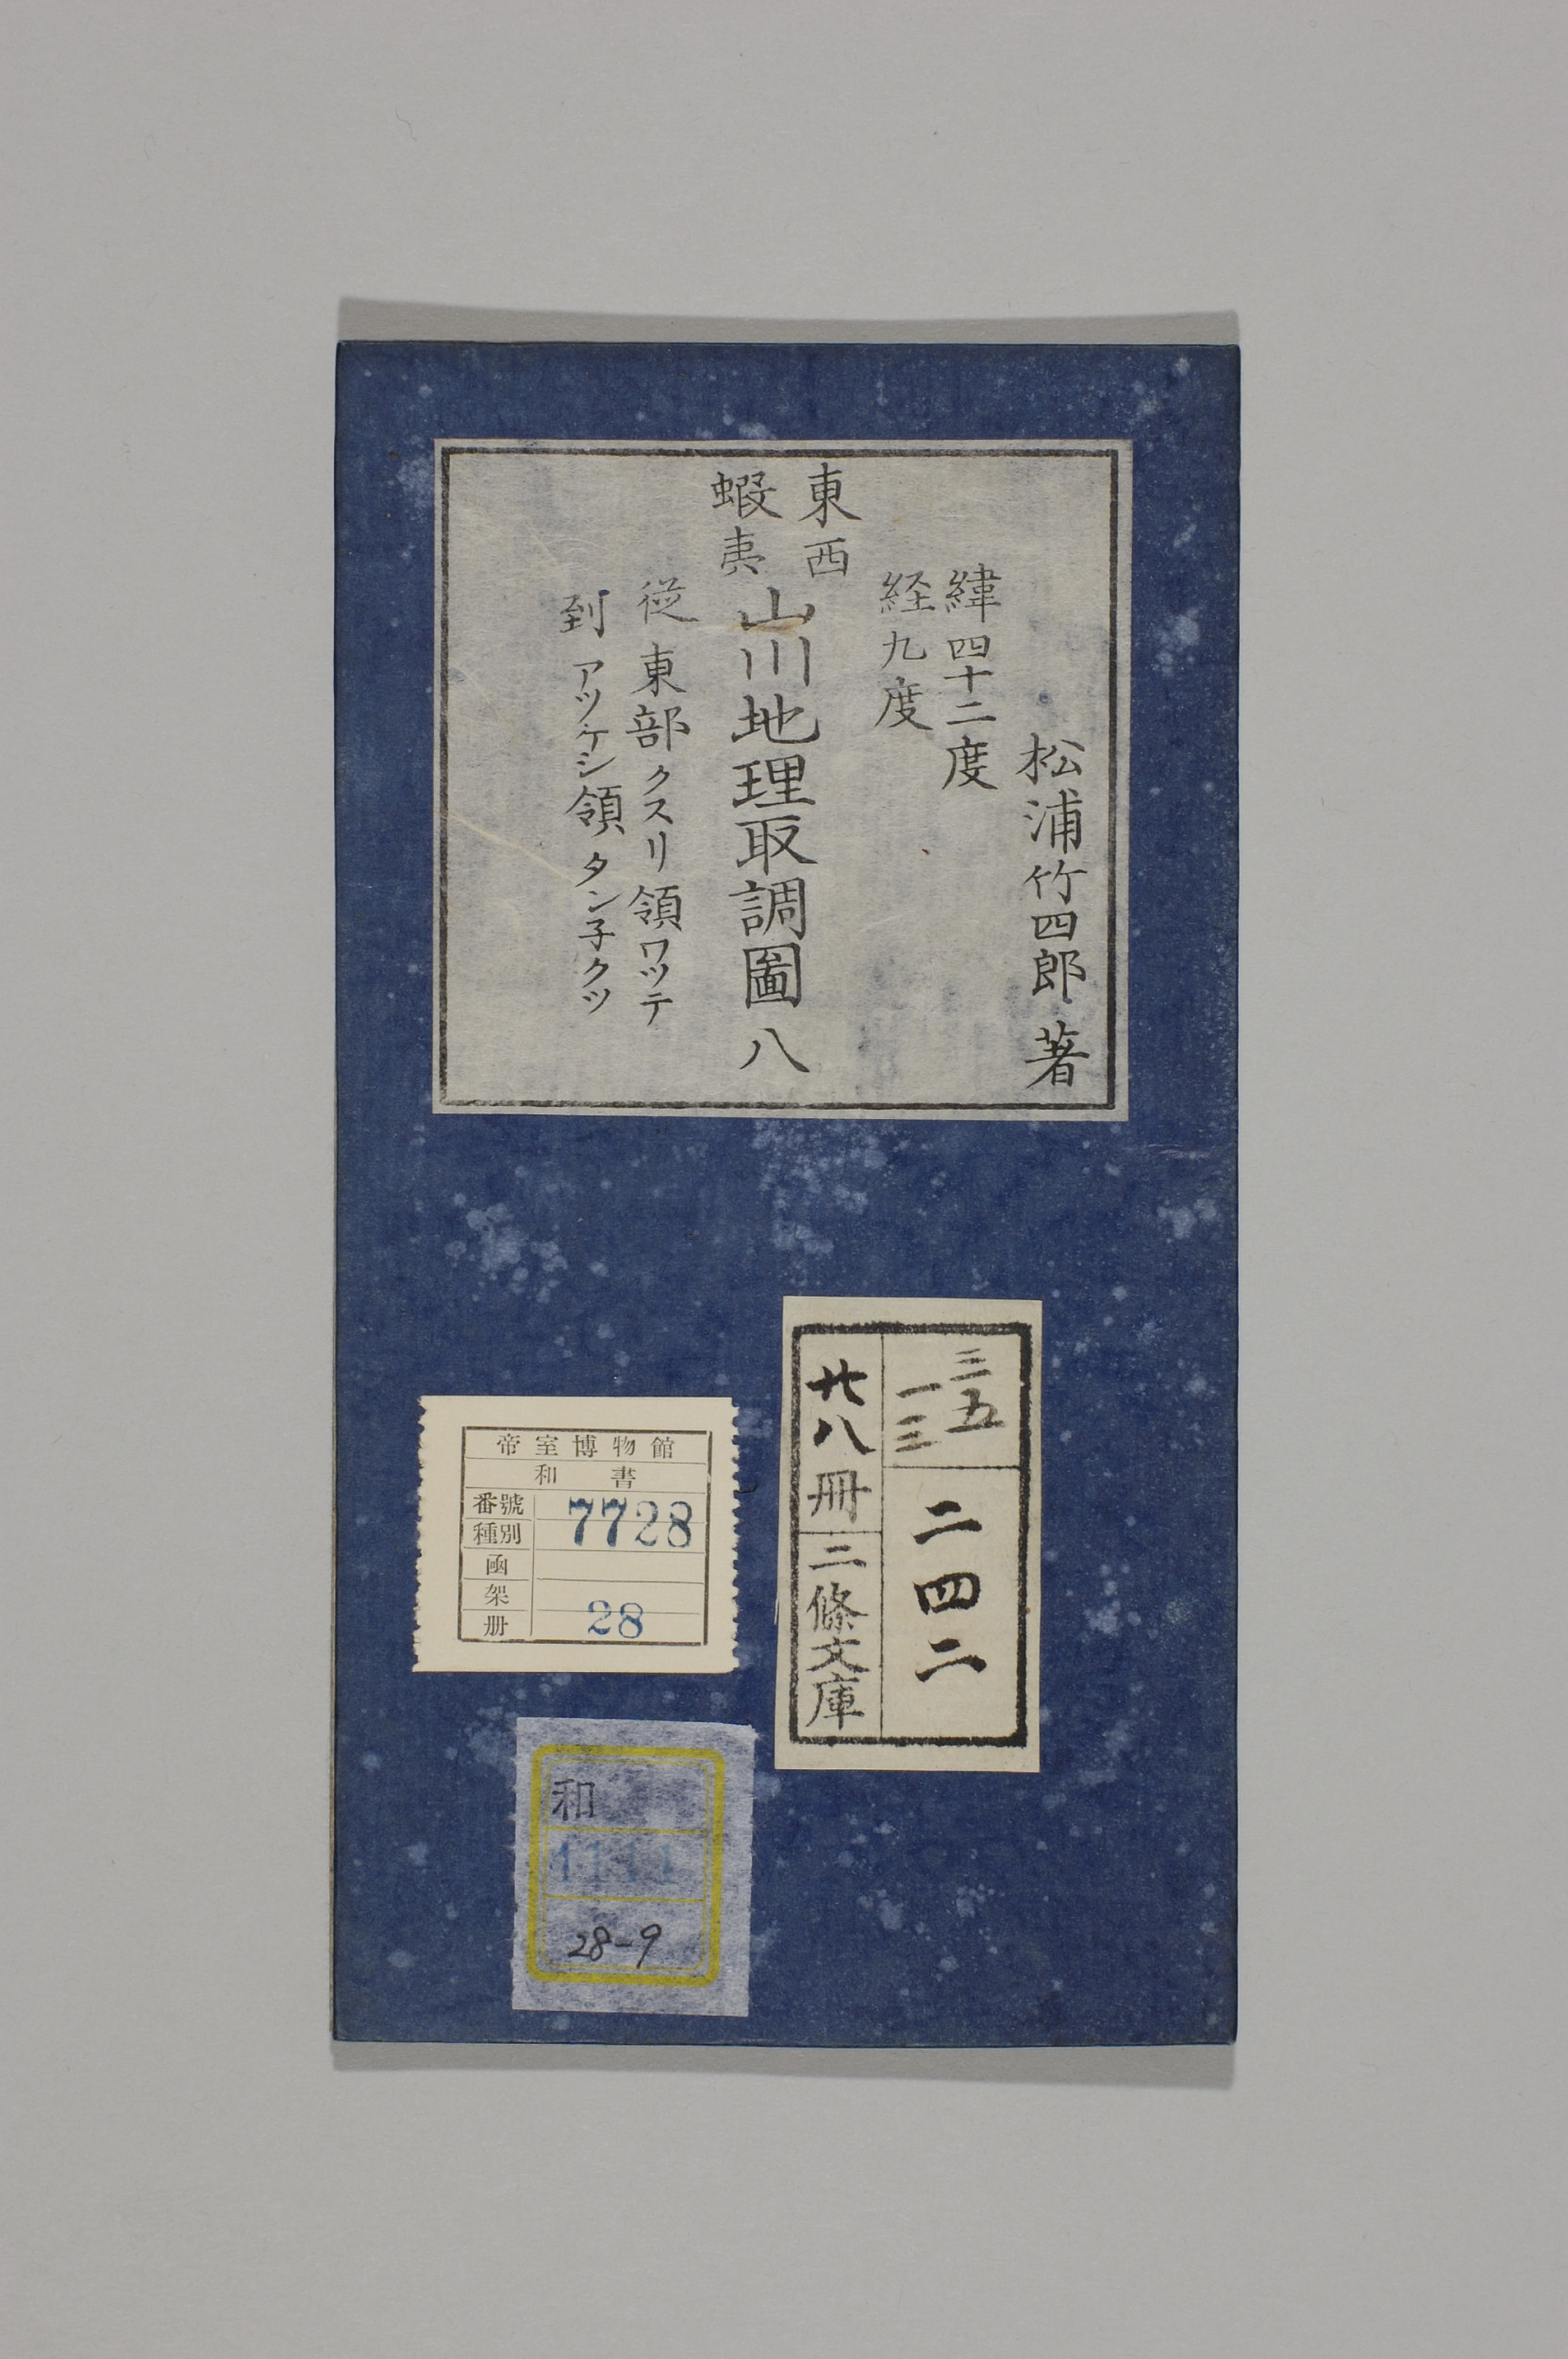 松浦竹四郎 著
緯四十二度
経九度
東西
蝦夷
山川地理取調圖 八
従東部クスリ領ワツテ
到アツケシ領タン子クツ
三五
一三
二四二
廿八冊
三條文庫
帝室博物館
和書
番號 7728
種別
函
架
册 28
和
28-9